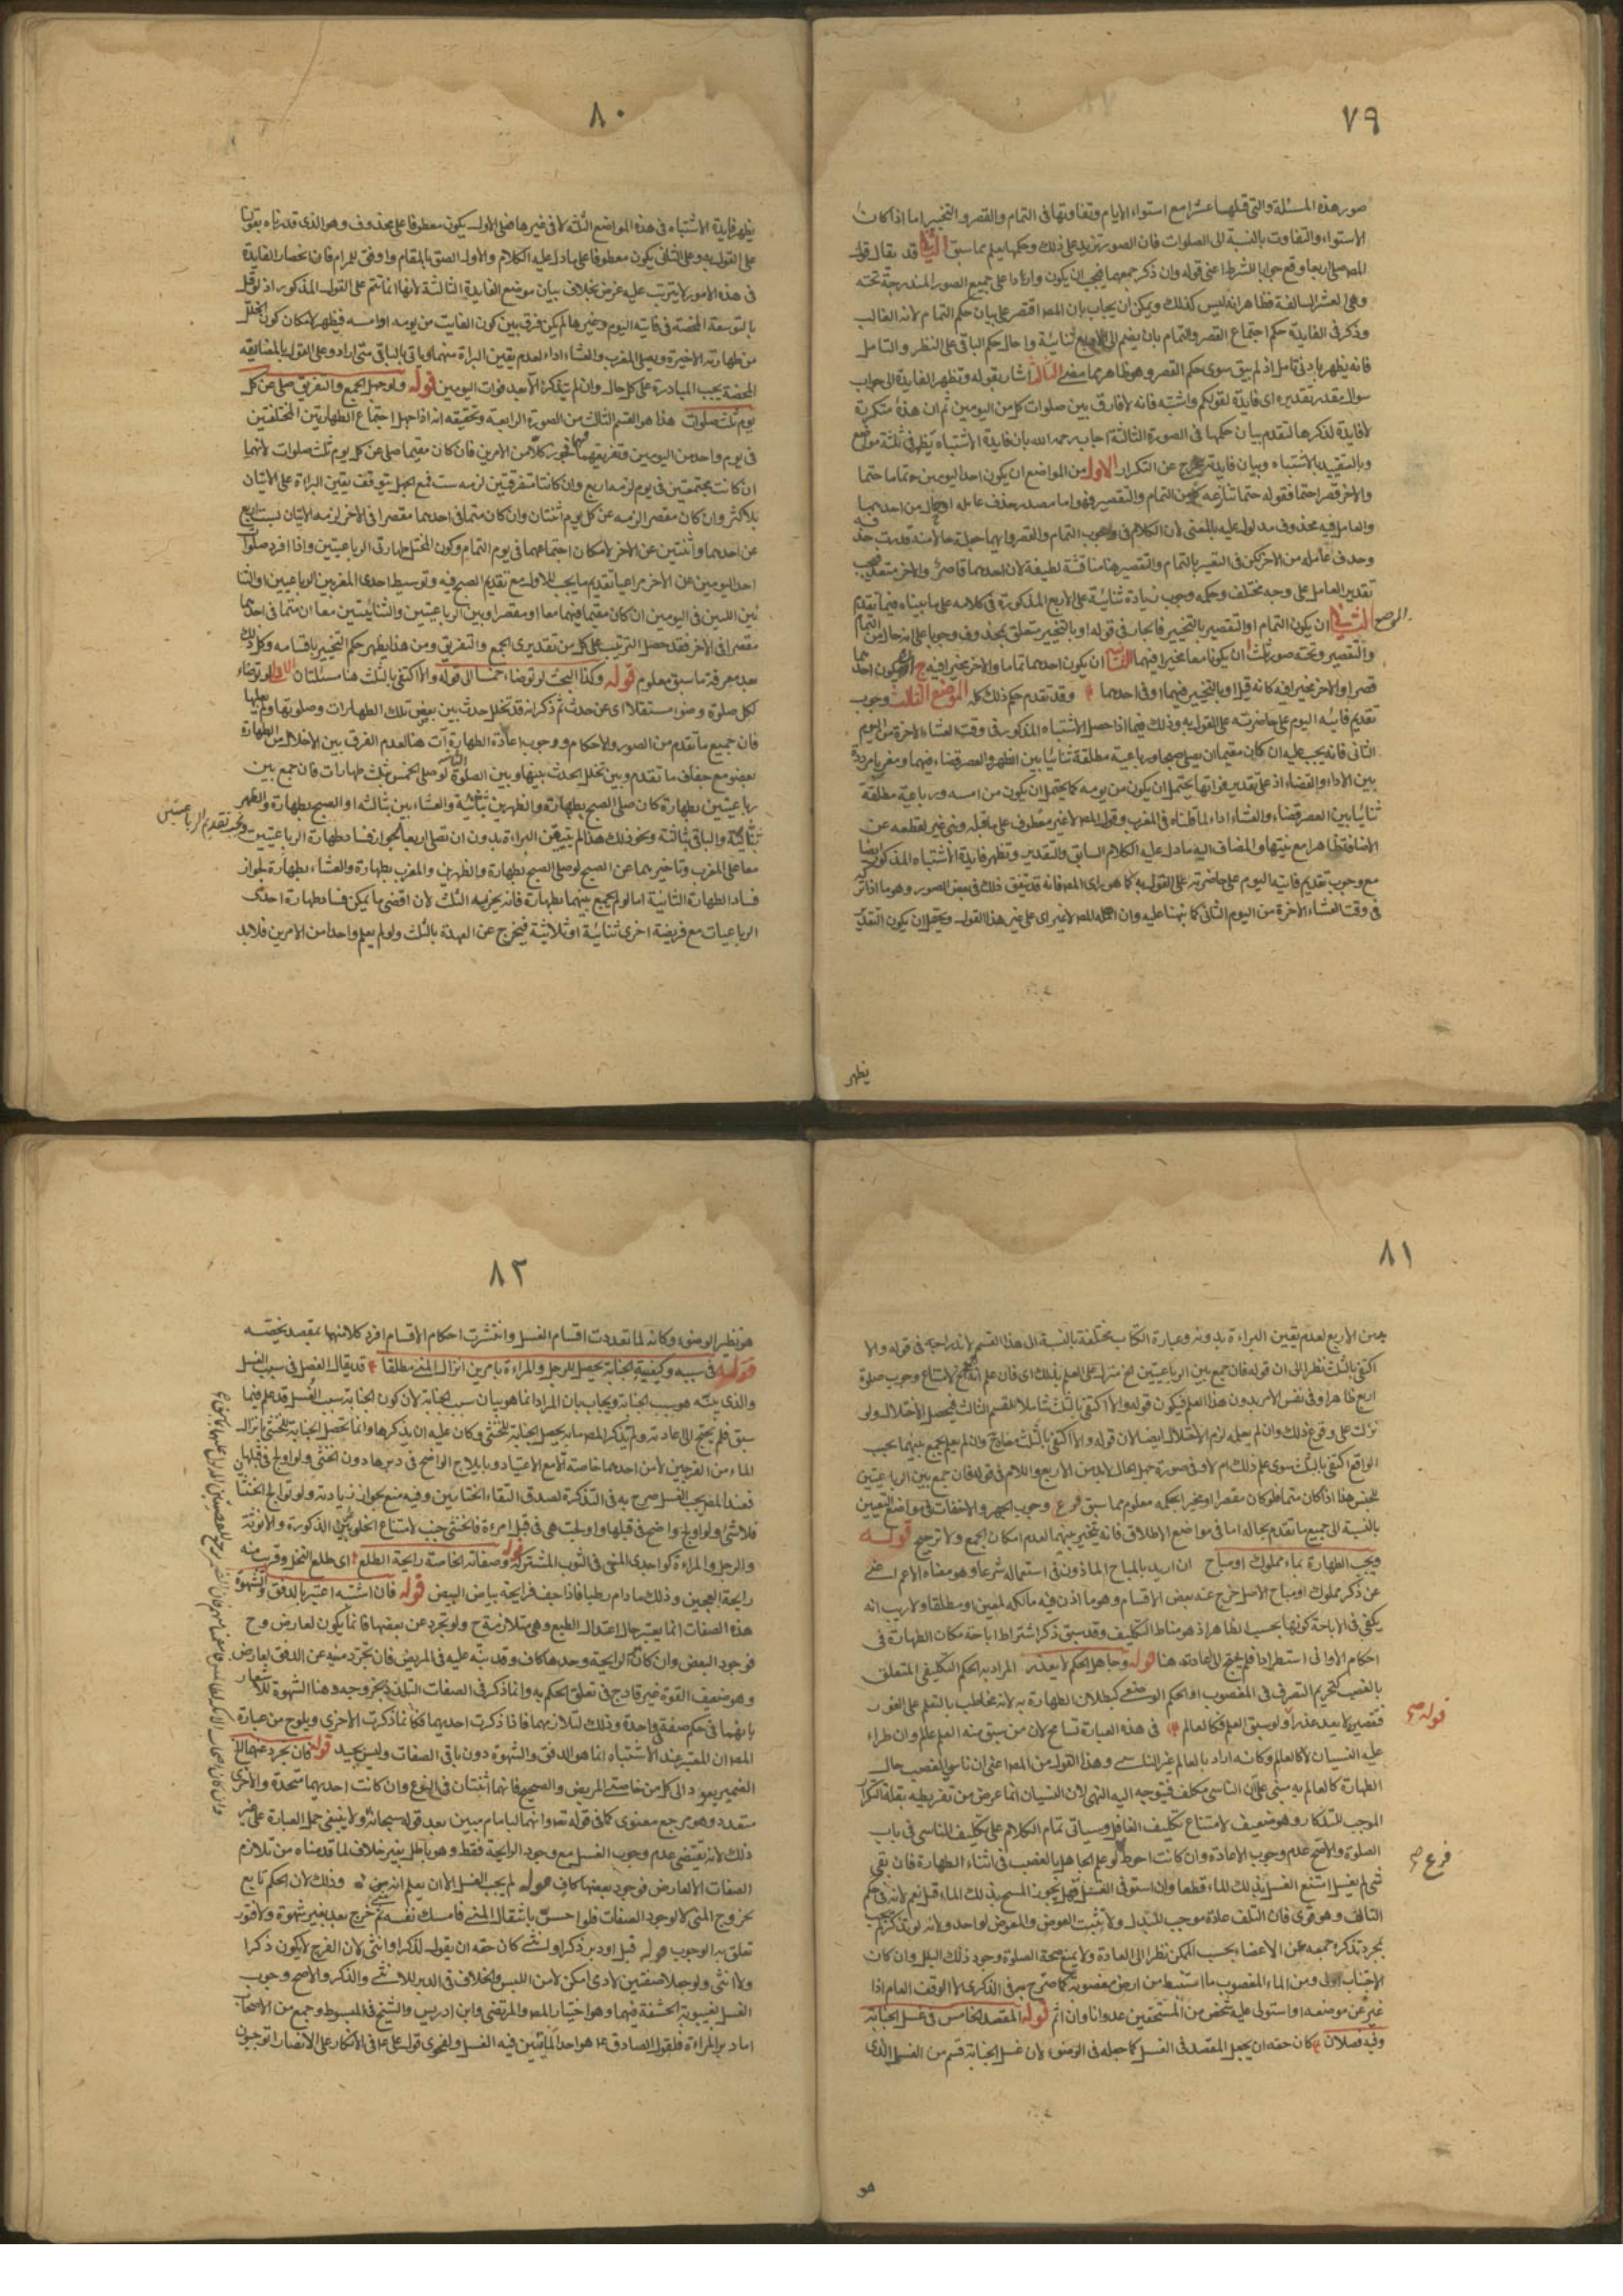 ٧٩
صور هذه المسئلة والتي قبلها عشرا مع استواء الايام وتفاوتها في التمام والقصر والتخيير اما اذا كان
الاستواء والتفاوت بالنسبة الى الصلوات فان الصور تزيد على ذلك وحكمها يعلم مما سبق الثاني قد يقال قوله
المص صلى اربعا وقع جوابا للشرط اعني قوله وان ذكر جمعهما فيجب ان يكون واردا على جميع الصور المندرجة تحته
وهي العشر السالفة فظاهر انه ليس كذلك ويمكن ان يجاب بان المص اقتصر على بيان حكم التمام لانه الغالب
وذكر في الفايدة حكم اجتماع القصر والتمام بان يضم الى الاربع ثنائية واحال حكم الباقي على النظر والتامل
فانه يظهر بادنى تامل اذ لم يبق سوى حكم القصر وهو ظاهر مما مضى الثالث اشار بقوله وتظهر الفايدة الى جواب
سوال مقدر تقديره اى فايدة لقولكم واشتبه فانه لا فارق بين صلوات كل من اليومين ثم ان هذه متكررة
لا فايدة لذكرها لتقدم بيان حكمها في الصورة الثالثة اجاب رحمه الله بان فايدة الاشتباه تظهر في ثلثة مواضع
وبالتقييد بالاشتباه وبيان فايدته خرج عن التكرار الاول من المواضع ان يكون احد اليومين تماما حتما
والاخر قصرا حتما فقوله حتما تنازعه كل من التمام والتقصير وهو اما مصدر حذف عامله او حال من احدهما
تقدير العامل على وجه مختلف وحكمه وجوب زيادة ثنائية على الاربع المذكورة في كلامه على ما بيناه فيما تقدم
الموضع الثاني ان يكون التمام او التقصير بالتخيير فالجار في قوله او بالتخيير متعلق بمحذوف وجوبا على انه حال من التمام
قصرا والاخر مخيرا فيه كانه قيل او بالتخيير فيهما او في احدهما وقد تقدم حكم ذلك كله الموضع الثالث وجوب
تقديم فايتة اليوم على حاضرته على القول به وذلك فيما اذا حصل الاشتباه المذكور في وقت العشاء الاخرة من اليوم
الثاني فانه يجب عليه ان كان مقيما ان يصلي صبحا ورباعية مطلقة ثنائيا بين الظهر والعصر قضاء فيهما ومغربا مرددة
بين الاداء والقضاء اذ على تقدير فواتها يحتمل ان يكون من يومه كما يحتمل ان يكون من امسه ورباعية مطلقة
ثنائيا بين العصر قضاء والعشاء اداء لما قلناه في المغرب وقول المص لا غير معطوف على ما قبله وبني غير لقطعه عن
الاضافة ظاهرا مع نيتها والمضاف اليه ما دل عليه الكلام السابق والتقدير وتظهر فايدة الاشتباه المذكور ايضا
مع وجوب تقديم فايتة اليوم على حاضرته على القول به كما هو راى المص فانه قد يتفق ذلك في بعض الصور وهو ما اذا ذكر
في وقت العشاء الاخرة من اليوم الثاني كما نبهنا عليه وان اهمله المص لا غير اى على غير هذا القول ويحتمل ان يكون التقدير
يظهر
٨٠
يظهر فايدة الاشتباه في هذه المواضع الثلثة لا في غيرها فعلى الاول يكون معطوفا على محذوف وهو الذى قدرناه بقولنا
على القول به وعلى الثاني يكون معطوفا على ما دل عليه الكلام والاول الصق بالمقام واوفق للمرام فان انحصار الفايدة
في هذه الامور لا يترتب عليه غرض بخلاف بيان موضع الفايدة الثالثة لانها انما تتم على القول المذكور اذ لو قيل
بالتوسعة المحضة في فايتة اليوم وغيرها لم يكن فرق بين كون الفايت من يومه او امسه فيظهر لامكان كون الخلل
من طهارته الاخيرة ويصلي المغرب والعشاء اداء لعدم يقين البراءة منهما وياتي بالباقي متى اراد وعلى القول بالمضايقة
المحضة يجب المبادرة على كل حال وان لم يتذكر الا بعد فوات اليومين قوله ولو جهل الجمع والتفريق صلى عن كل
يوم ثلث صلوات هذا هو القسم الثالث من الصورة الرابعة وتحقيقه انه اذا جهل اجتماع الطهارتين المختلفتين
في يوم واحد من اليومين وتفريقهما فيجوز كلا من الامرين فان كان مقيما صلى عن كل يوم ثلث صلوات لانهما
ان كانتا مجتمعتين في يوم لزمه اربع وان كانتا متفرقتين لزمه ست فمع الجهل يتوقف يقين البراءة على الاتيان
بالاكثر وان كان مقصرا لزمه عن كل يوم اثنتان وان كان متما في احدهما مقصرا في الاخر لزمه الاتيان
عن احدهما واثنتين عن الاخر لامكان اجتماعهما في يوم التمام وكون المختل طهارتى الرباعيتين واذا افرد صلوات
احد اليومين عن الاخر مراعيا تقديم ما يجب للاول مع تقديم الصبح فيه وتوسيط احدى المغربين الرباعيتين او الثنا
ئيتين اللتين في اليومين ان كان مقيما فيهما معا او مقصرا وبين الرباعيتين والثنائيتين معا ان متما في احدهما
مقصرا في الاخر فقد حصل الترتيب على كل من تقديرى الجمع والتفريق ومن هذا يظهر حكم التخيير باقسامه وكل ذلك
بعد معرفة ما سبق معلوم قوله وكذا البحث لو توضاء خمسا الى قوله والا اكتفى بالثلث هنا مسئلتان الاولى لو توضاء
لكل صلوة وضوا مستقلا اى عن حدث ثم ذكر انه قد تخلل حدث بين بعض تلك الطهارات وصلوتها ولم يعلمها
فان جميع ما تقدم من الصور والاحكام ووجوب اعادة الطهارة آت هنا لعدم الفرق بين الاخلال من الطهارة
بعضو مع جفاف ما تقدم وبين تخلل الحدث بينها وبين الصلوة الثانية لو صلى الخمس بثلث طهارات فان جمع بين
رباعيتين بطهارة كان صلى الصبح بطهارة والظهرين بثانية والعشاءين بثالثة او الصبح بطهارة والظهر
بثانية والباقي بثالثة ونحو ذلك هذا لم يتيقن البراءة بدون ان يصلي اربعا لجواز فساد طهارة الرباعيتين ويجب تقديم الرباعيتين
معا على المغرب وتاخيرهما عن الصبح لو صلى الصبح بطهارة والظهرين والمغرب بطهارة والعشاء بطهارة لجواز
فساد الطهارة الثانية اما لو لم يجمع بينهما بطهارة فانه يجزيه الثلث لان اقصى ما يمكن فساد طهارة احدى
الرباعيات مع فريضة اخرى ثنائية او ثلاثية فيخرج عن العهدة بالثلث ولو لم يعلم واحدا من الامرين فلا بد
٨١
من الاربع لعدم يقين البراءة بدونه وعبارة الكتاب مختلفة بالنسبة الى هذا القسم لاندراجه في قوله والا
اكتفى بالثلث نظرا الى ان قوله فان جمع بين الرباعيتين الخ منزل على العلم بذلك اى فان علم انه جمع لامتناع وجوب صلوة
اربع ظاهرا وفي نفس الامر بدون هذا العلم فيكون قوله والا اكتفى بالثلث شاملا للقسم الثالث فيحصل الاختلال ولو
نزل على وقوع ذلك وان لم يعلمه لزم الاختلال ايضا لان قوله والا اكتفى بالثلث
الواقع اكتفى بالثلث سوى علم ذلك ام لا وفي صورة جهل الحال لابد من الاربع واللام في قوله فان جمع بين الرباعيتين
للجنس هذا اذا كان متما فلو كان مقصرا او مخيرا فحكمه معلوم مما سبق فرع وجوب الجهر والاخفات في مواضع التعيين
بالنسبة الى جميع ما تقدم بحاله اما في مواضع الاطلاق فانه يتخير بينهما لعدم امكان الجمع ولا ترجيح قوله
ويجب الطهارة بماء مملوك او مباح ان اريد بالمباح الماذون في استعماله شرعا وهو معناه الاعم اغنى
عن ذكر مملوك او مباح الاصل خرج عنه بعض الاقسام وهو ما اذن فيه مالكه لمعين او مطلقا ولا ريب انه
يكفي في الاباحة كونها بحسب الظاهر اذ هو مناط التكليف وقد سبق ذكر اشتراط اباحة مكان الطهارة في
احكام الاواني استطرادا فلم يحتج الى اعادته هنا قوله وجاهل الحكم لا يعذر المراد به الحكم التكليفي المتعلق
بالغصب كتحريم التصرف في المغصوب او الحكم الوضعي كبطلان الطهارة به لانه مخاطب بالتعلم على الفور
فتقصيره لا يعد عذرا ولو سبق العلم فكالعالم في هذه العبارة تسامح لان من سبق منه العلم عالم وان طراء
قوله صح
عليه النسيان لا كالعالم وكانه اراد بالعالم غير الناسي وهذا القول من المص اعني ان ناسي الغصب حال
الطهارة كالعالم به مبني على ان الناسي مكلف فيتوجه اليه النهى لان النسيان انما عرض من تفريطه بقلة التكرار
الموجب للتذكار وهو ضعيف لامتناع تكليف الغافل وسياتى تمام الكلام على تكليف الناسي في باب
الصلوة والاصح عدم وجوب الاعادة وان كانت احوط لو علم الجاهل بالغصب في اثناء الطهارة فان بقي
فرع صح
شى لم يغسل امتنع الغسل بذلك الماء قطعا وان استوفى الغسل فهل يجوز المسح بذلك الماء قيل نعم لانه في حكم
التالف وهو قوى فان التلف عادة موجب للبدل ولا يثبت العوض والمعوض لواحد ولانه لو تذكر لم يجب
بمجرد تذكره جمعه عن الاعضاء بحسب الممكن نظرا الى العادة ولا يمنع صحة الصلوة وجود ذلك البلل وان كان
الاجتناب اولى ومن الماء المغصوب ما استنبط من ارض مغصوبة كما صرح به في الذكرى لا الوقف العام اذا
غير عن موضعه او استولى عليه شخص من المستحقين عدوانا وان اثم قوله المقصد الخامس في غسل الجنابة
وفيه فصلان كان حقه ان يجعل المقصد في الغسل كما جعله في الوضوء لان غسل الجنابة قسم من الغسل الذى
هو
٨٢
هو نظير الوضوء وكانه لما تعددت اقسام الغسل وانتشرت احكام الاقسام افرد كلا منها بمقصد يخصه
قوله في سببه وكيفيته الجنابة يحصل للرجل والمراءة بامرين انزال المني مطلقا قد يقال الفصل في سبب الغسل
والذى بينه هو سبب الجنابة ويجاب بان المراد انما هو بيان سبب الجنابة لان كون الجنابة سبب الغسل قد علم فيما
سبق فلم يحتج الى اعادته ولم يذكر المص ما به يحصل الجنابة للخنثى وكان عليه ان يذكرها وانما تحصل الجنابة للخنثى بانزاله
الماء من الفرجين لا من احدهما خاصة الا مع الاعتياد وبايلاج الواضح في دبرها دون الخنثى ولو اولج في قبلها
فعند المص يجب الغسل صرح به في التذكرة لصدق التقاء الختانين وفيه منع بجواز زيادته ولو توالج الخنثيان
فلا شئ ولو اولج واضح في قبلها واولجت هى في قبل امرءة فالخنثى جنب لامتناع الخلو عن الذكورة والانوثة
والرجل والمراءة كواجدى المنى في الثوب المشترك قوله وصفاته الخاصة رايحة الطلع اى طلع النخل وقريب منه
رايحة العجين وذلك ما دام رطبا فاذا جف فرايحة بياض البيض قوله فان اشتبه اعتبر بالدفق والشهوة
هذه الصفات انما يعتبر حال اعتدال الطبع وهي متلازمة ح ولو تجرد عن بعضها فانما يكون لعارض وح
فوجود البعض وان كان الرايحة وحدها كاف وقد نبه عليه في المريض فان تجرد منيه عن الدفق لعارض
وهو ضعيف القوة غير قادح في تعلق الحكم به وانما ذكر في الصفات التلذذ بخروجه وهنا الشهوة للاشعار
بانهما في حكم صفة واحدة وذلك لتلازمهما فاذا ذكرت احديهما فكانما ذكرت الاخرى ويلوح من عبارة
المص ان المعتبر عند الاشتباه انما هو الدفق والشهوة دون باقي الصفات وليس بجيد قوله فان تجرد عنهما الخ
الضمير يعود الى كل من خاصتى المريض والصحيح فانهما اثنتان في النوع وان كانت احديهما متحدة والاخرى
متعدد وهو مرجع معنوى كما في قوله تعم وانهما لبامام مبين بعد قوله سبحانه ولا ينبغي حمل العبارة على غير
ذلك لانه يقتضى عدم وجوب الغسل مع وجود الرايحة فقط وهو باطل بغير خلاف لما قدمناه من تلازم
الصفات الا لعارض فوجود بعضها كاف قوله لم يجب الغسل الا ان يعلم انه مني وذلك لان الحكم تابع
لخروج المنى لا لوجود الصفات فلو احس بانتقال المنى فامسك نفسه ثم خرج بعد بغير شهوة ولا فتور
تعلق به الوجوب قوله قبل او دبر ذكر او انثى كان حقه ان يقول لذكر او انثى لان الفرج لا يكون ذكرا
ولا انثى ولو جعلا صفتين لادمى امكن لامن اللبس والخلاف في الدبر للانثى والذكر والاصح وجوب
الغسل بغيبوبة الحشفة فيهما وهو اختيار المص والمرتضى وابن ادريس والشيخ في المبسوط وجمع من الاصحاب
اما دبر المراءة فلقول الصادق ع هو احد الماتيين فيه الغسل ولفحوى قول على ع في الانكار على الانصار اتوجبون